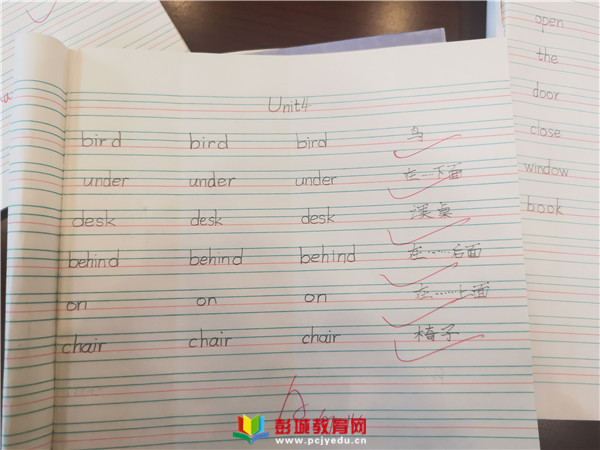 Unit4
bird bird bird 鸟
under under under 在…下面
desk desk desk 课桌
behind behind behind 在……后面
on on on 在……上面
chair chair chair 椅子
open
the
door
close
window
book
彭城教育网
www.pcjyedu.cn